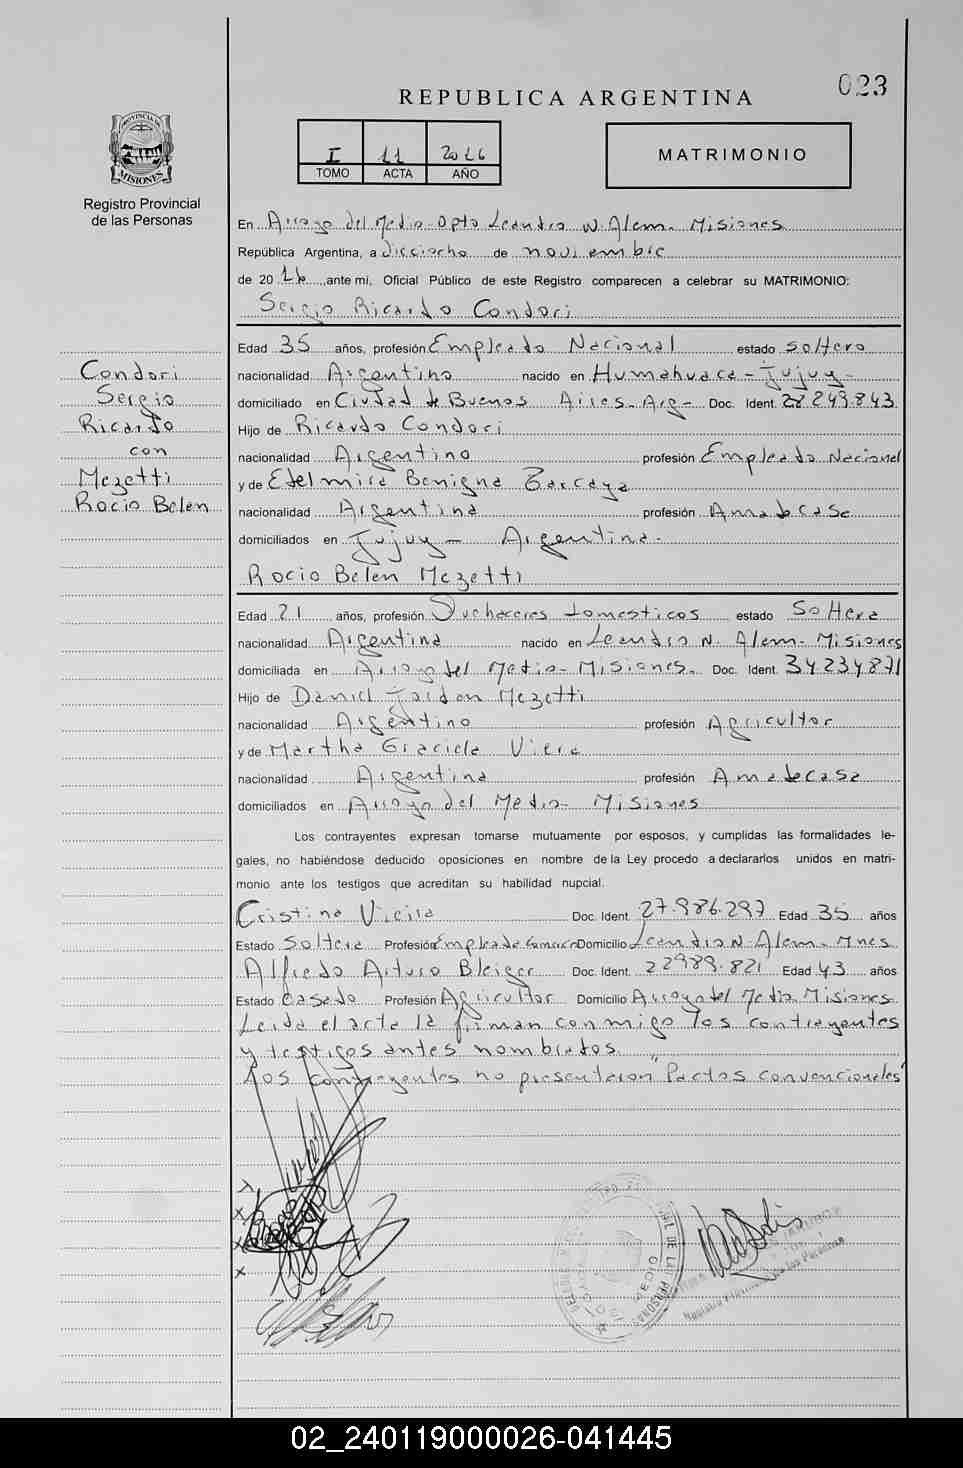 023
REPUBLICA ARGENTINA
I 11 2016
TOMO ACTA AÑO
MATRIMONIO
PROVINCIA DE
MISIONES
Registro Provincial
de las Personas
En Arroyo del Medio-Dpto Leandro N. Alem- Misiones
República Argentina, a dieciocho de noviembre
de 2016 ,ante mi, Oficial Público de este Registro comparecen a celebrar su MATRIMONIO:
Sergio Ricardo Condori
Edad 35 años, profesión Empleado Nacional estado soltero
nacionalidad Argentino nacido en Humahuaca-Jujuy-
domiciliado en Ciudad de Buenos Aires-Arg- Doc. Ident. 28249843
Hijo de Ricardo Condori
nacionalidad Argentino profesión Empleado Nacional
y de Edelmira Benigna Zarcaya
nacionalidad Argentina profesión Amadecasa
domiciliados en Jujuy- Argentina-
Rocio Belen Mezetti
Condori
Sergio
Ricardo
con
Mezetti
Rocio Belen
Edad 21 años, profesión Quehaceres domesticos estado Soltera
nacionalidad Argentina nacido en Leandro N. Alem- Misiones
domiciliada en Arroyo del Medio-Misiones- Doc. Ident. 34234871
Hijo de Daniel Jordon Mezetti
nacionalidad Argentino profesión Agricultor
y de Martha Graciela Viera
nacionalidad Argentina profesión Amadecasa
domiciliados en Arroyo del Medio- Misiones
Los contrayentes expresan tomarse mutuamente por esposos, y cumplidas las formalidades le-
gales, no habiéndose deducido oposiciones en nombre de la Ley procedo a declararlos unidos en matri-
monio ante los testigos que acreditan su habilidad nupcial.
Cristina Vieira Doc. Ident. 27.986.297 Edad 35 años
Estado Soltera Profesión Domicilio Leandro N-Alem- Mnes
Alfredo Arturo Bleiger Doc. Ident. 22989.821 Edad 43 años
Estado Casado Profesión Agricultor Domicilio Arroyo del Medio Misiones
Leida el acta la firman conmigo los contrayentes
y testigos antes nombrados.
Los contrayentes no presentaron "Pactos convencionales"
02_240119000026-041445